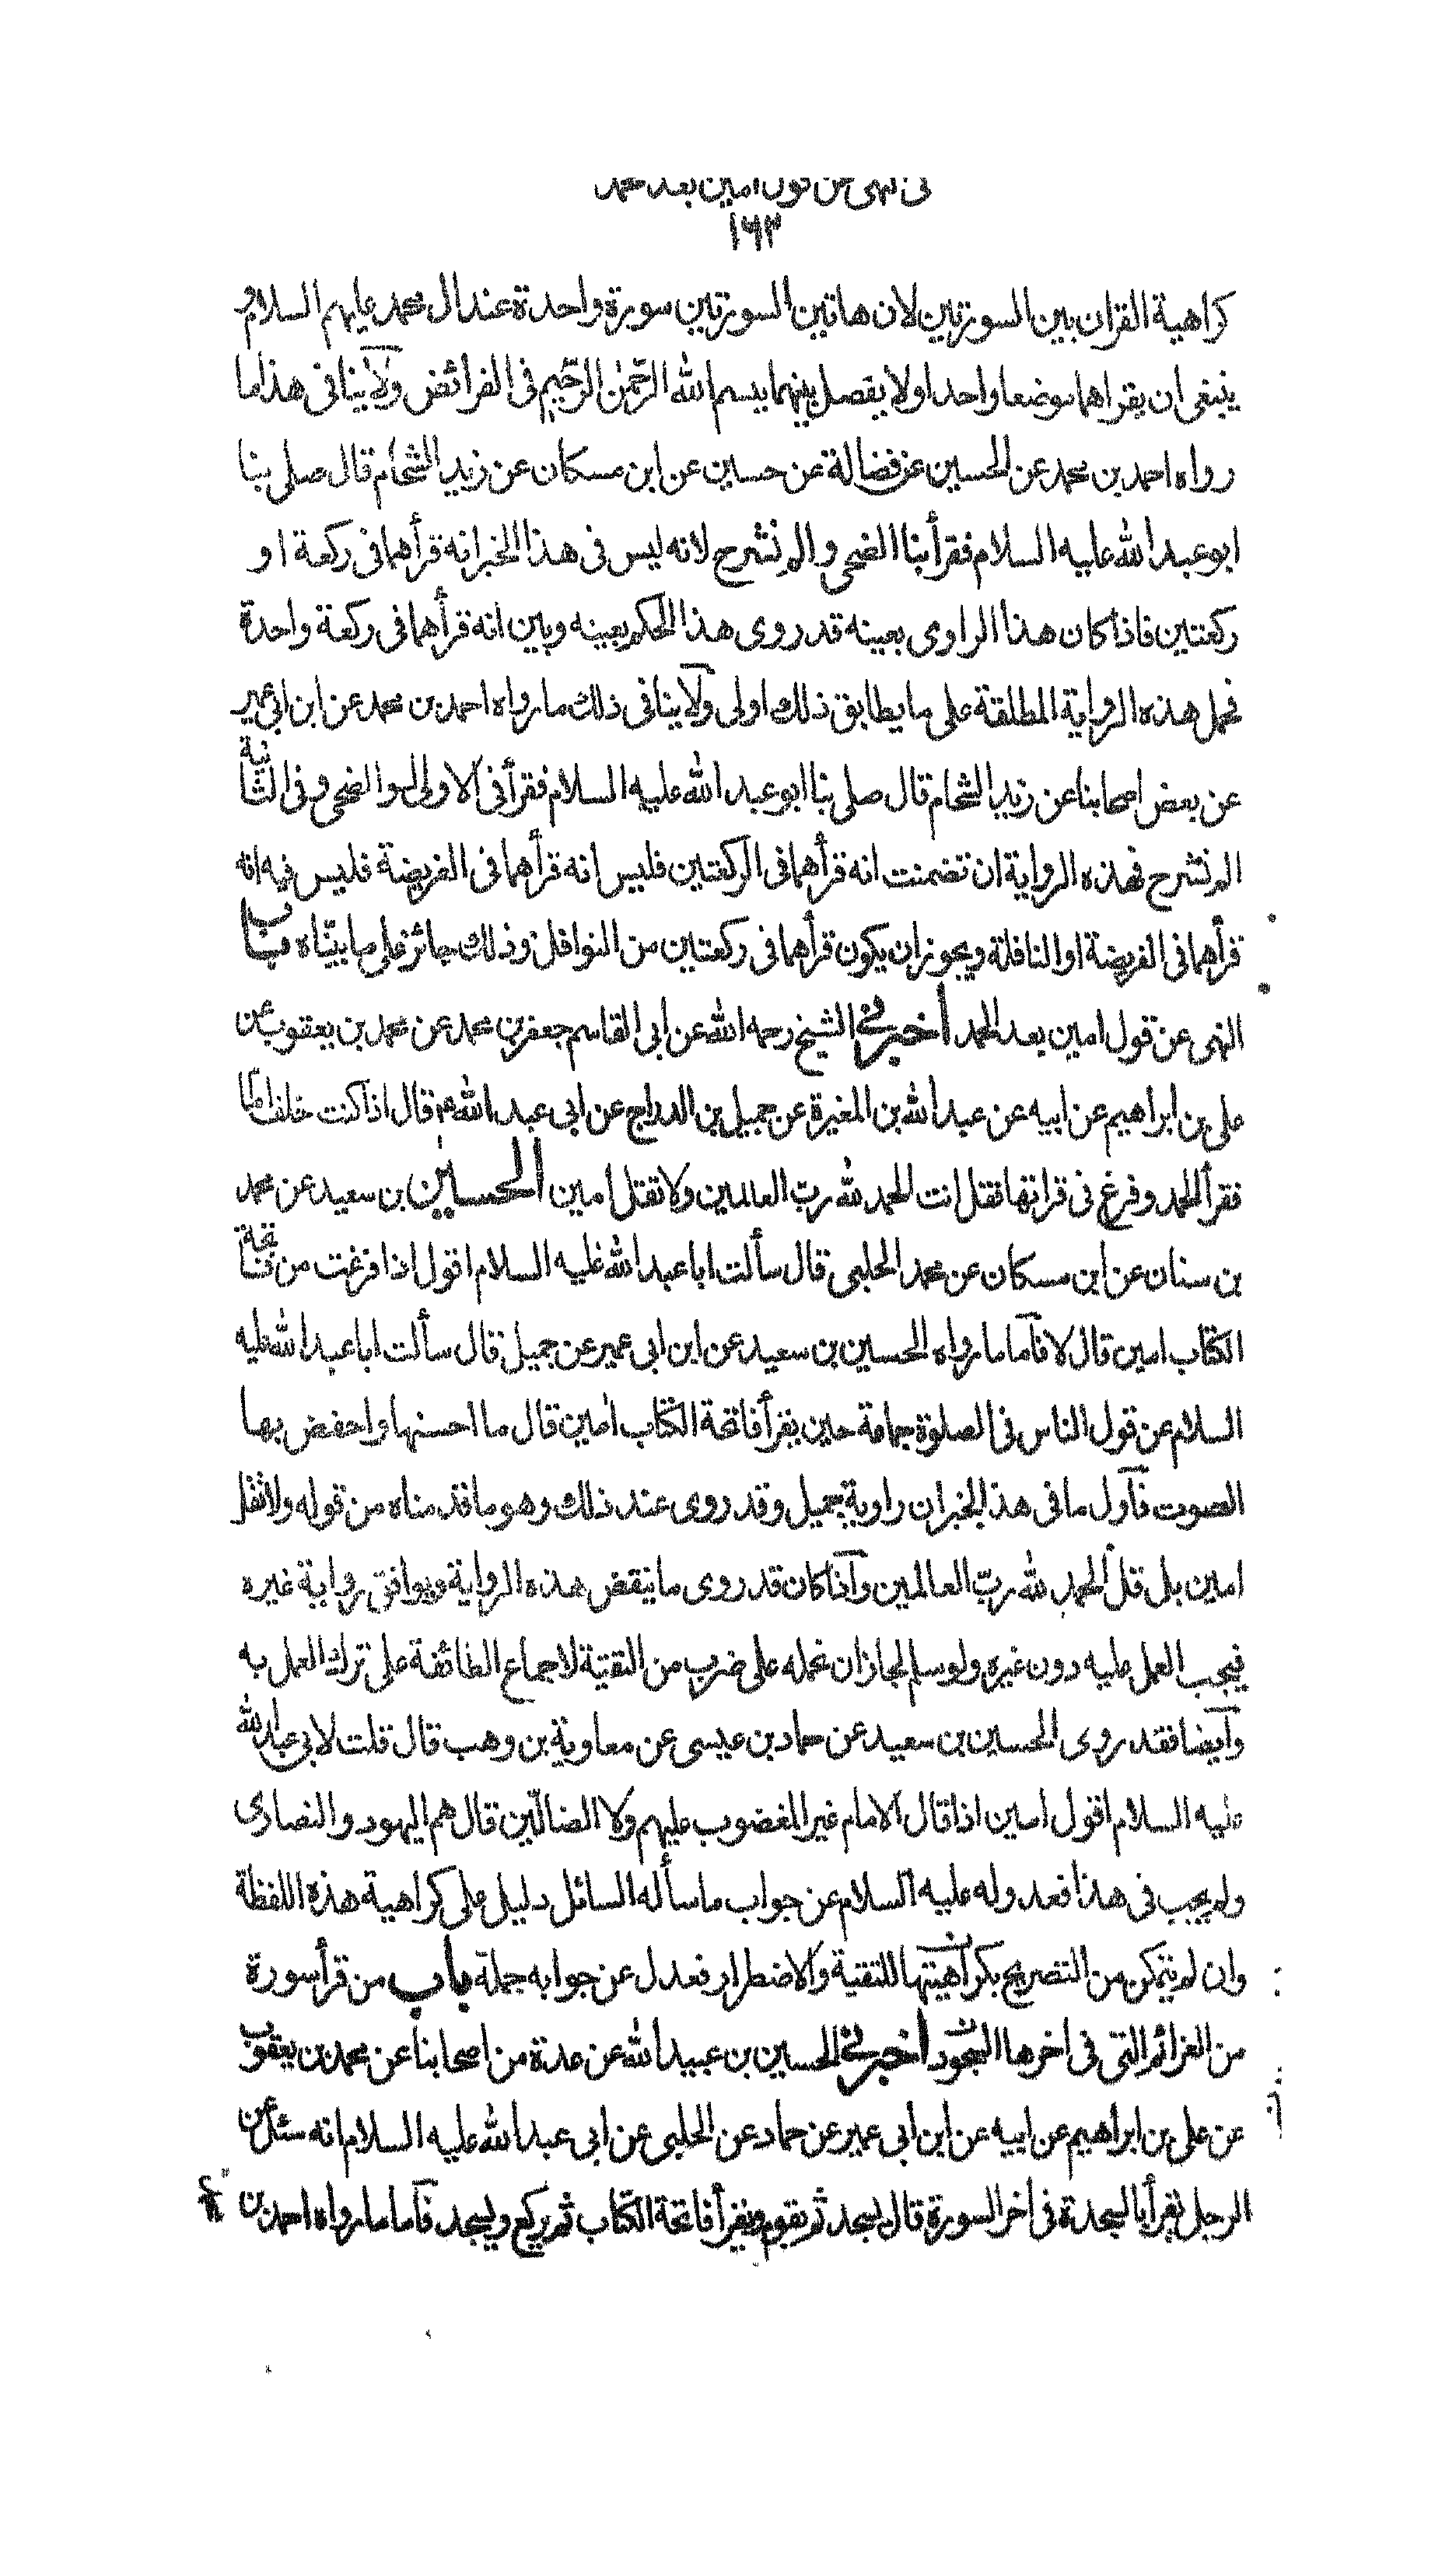 فى النهى عن قول امين بعد الحمد
١٦٣
كراهية القران بين السورتين لان هاتين السورتين سورة واحدة عند ال محمد عليهم السلام و
ينبغى ان يقراهما موضعا واحدا ولا يفصل بينهما ببسم الله الرّحمٰن الرّحيم فى الفرائض ولا ينافى هذا ما
رواه احمد بن محمد عن الحسين عن فضالة عن حسين عن ابن مسكان عن زيد الشحّام قال صلى بنا
ابو عبد الله عليه السلام فقرأ بنا الضحى والم نشرح لانه ليس فى هذا الخبر انه قرأهما فى ركعة او
ركعتين فاذا كان هذا الراوى بعينه قد روى هذا الحكم بعينه وبين انه قرأهما فى ركعة واحدة
فحمل هذه الرواية المطلقة على ما يطابق ذلك اولى ولا ينافى ذلك ما رواه احمد بن محمد عن ابن ابى عمير
عن بعض اصحابنا عن زيد الشحام قال صلى بنا ابو عبد الله عليه السلام فقرأ فى الاولى والضحى وفى الثانية
الم نشرح فهذه الرواية ان تضمنت انه قرأهما فى الركعتين فليس انه قرأهما فى الفريضة فليس فيه انه
قرأهما فى الفريضة او النافلة ويجوز ان يكون قرأهما فى ركعتين من النوافل وذلك جائز على ما بيّنّاه باب
النهى عن قول امين بعد الحمد اخبرنى الشيخ رحمه الله عن ابى القاسم جعفر بن محمد عن محمد بن يعقوب عن
على بن ابراهيم عن ابيه عن عبد الله بن المغيرة عن جميل بن الدراج عن ابى عبد الله ع قال اذا كنت خلف امام
فقرأ الحمد وفرغ فى قرائتها فقل انت الحمد لله ربّ العالمين ولا تقل امين الحسين بن سعيد عن محمد
بن سنان عن ابن مسكان عن محمد الحلبى قال سألت ابا عبد الله عليه السلام اقول اذا فرغت من فاتحة
الكتاب امين قال لا فآما ما رواه الحسين بن سعيد عن ابن ابى عمير عن جميل قال سألت ابا عبد الله عليه
السلام عن قول الناس فى الصلوة جماعة حين يقرأ فاتحة الكتاب امين قال ما احسنها واخفض بها
الصوت فآول ما فى هذا الخبر ان راوية جميل وقد روى عند ذلك وهو ما قد مناه من قوله ولا تقل
امين بل قل الحمد لله ربّ العالمين وآذا كان قد روى ما ينقض هذه الرواية ويوافق رواية غيره
فيجب العمل عليه دون غيره ولو سلم لجاز ان نحمله على ضرب من التقيّة لاجماع الطائفة على ترك العمل به
وآيضا فقد روى الحسين بن سعيد عن حماد بن عيسى عن معاوية بن وهب قال قلت لابى عبد الله
عليه السلام اقول امين اذا قال الامام غير المغضوب عليهم ولا الضالّين قال هم اليهود والنصارى
ولم يجب فى هذا فعدوله عليه السلام عن جواب ما سأله السائل دليل على كراهية هذه اللفظة
وان لم يتمكن من التصريح بكراهيتها للتقية والاضطرار فعدل عن جوابه جملة باب من قرأ سورة
من العزائم التى فى اخرها السجود اخبرنى الحسين بن عبيد الله عن عدة من اصحابنا عن محمد بن يعقوب
عن على بن ابراهيم عن ابيه عن ابن ابى عمير عن حماد عن الحلبى عن ابى عبد الله عليه السلام انه سئل عن
الرجل يقرأ بالسجدة فى اخر السورة قال يسجد ثم يقوم ويقرأ فاتحة الكتاب ثم يركع ويسجد فآما ما رواه احمد بن